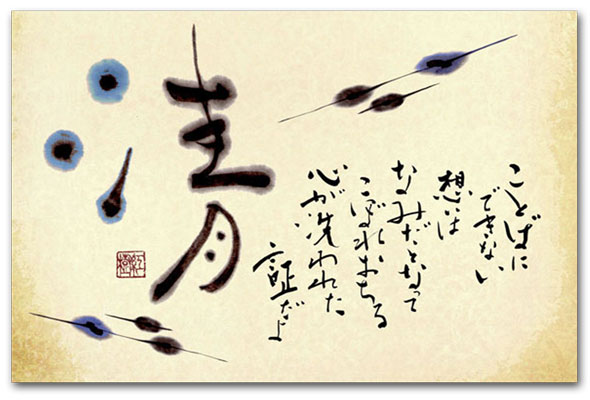 清
ことばに
できない
想いは
なみだとなって
こぼれおちる
心が洗われた
証だよ